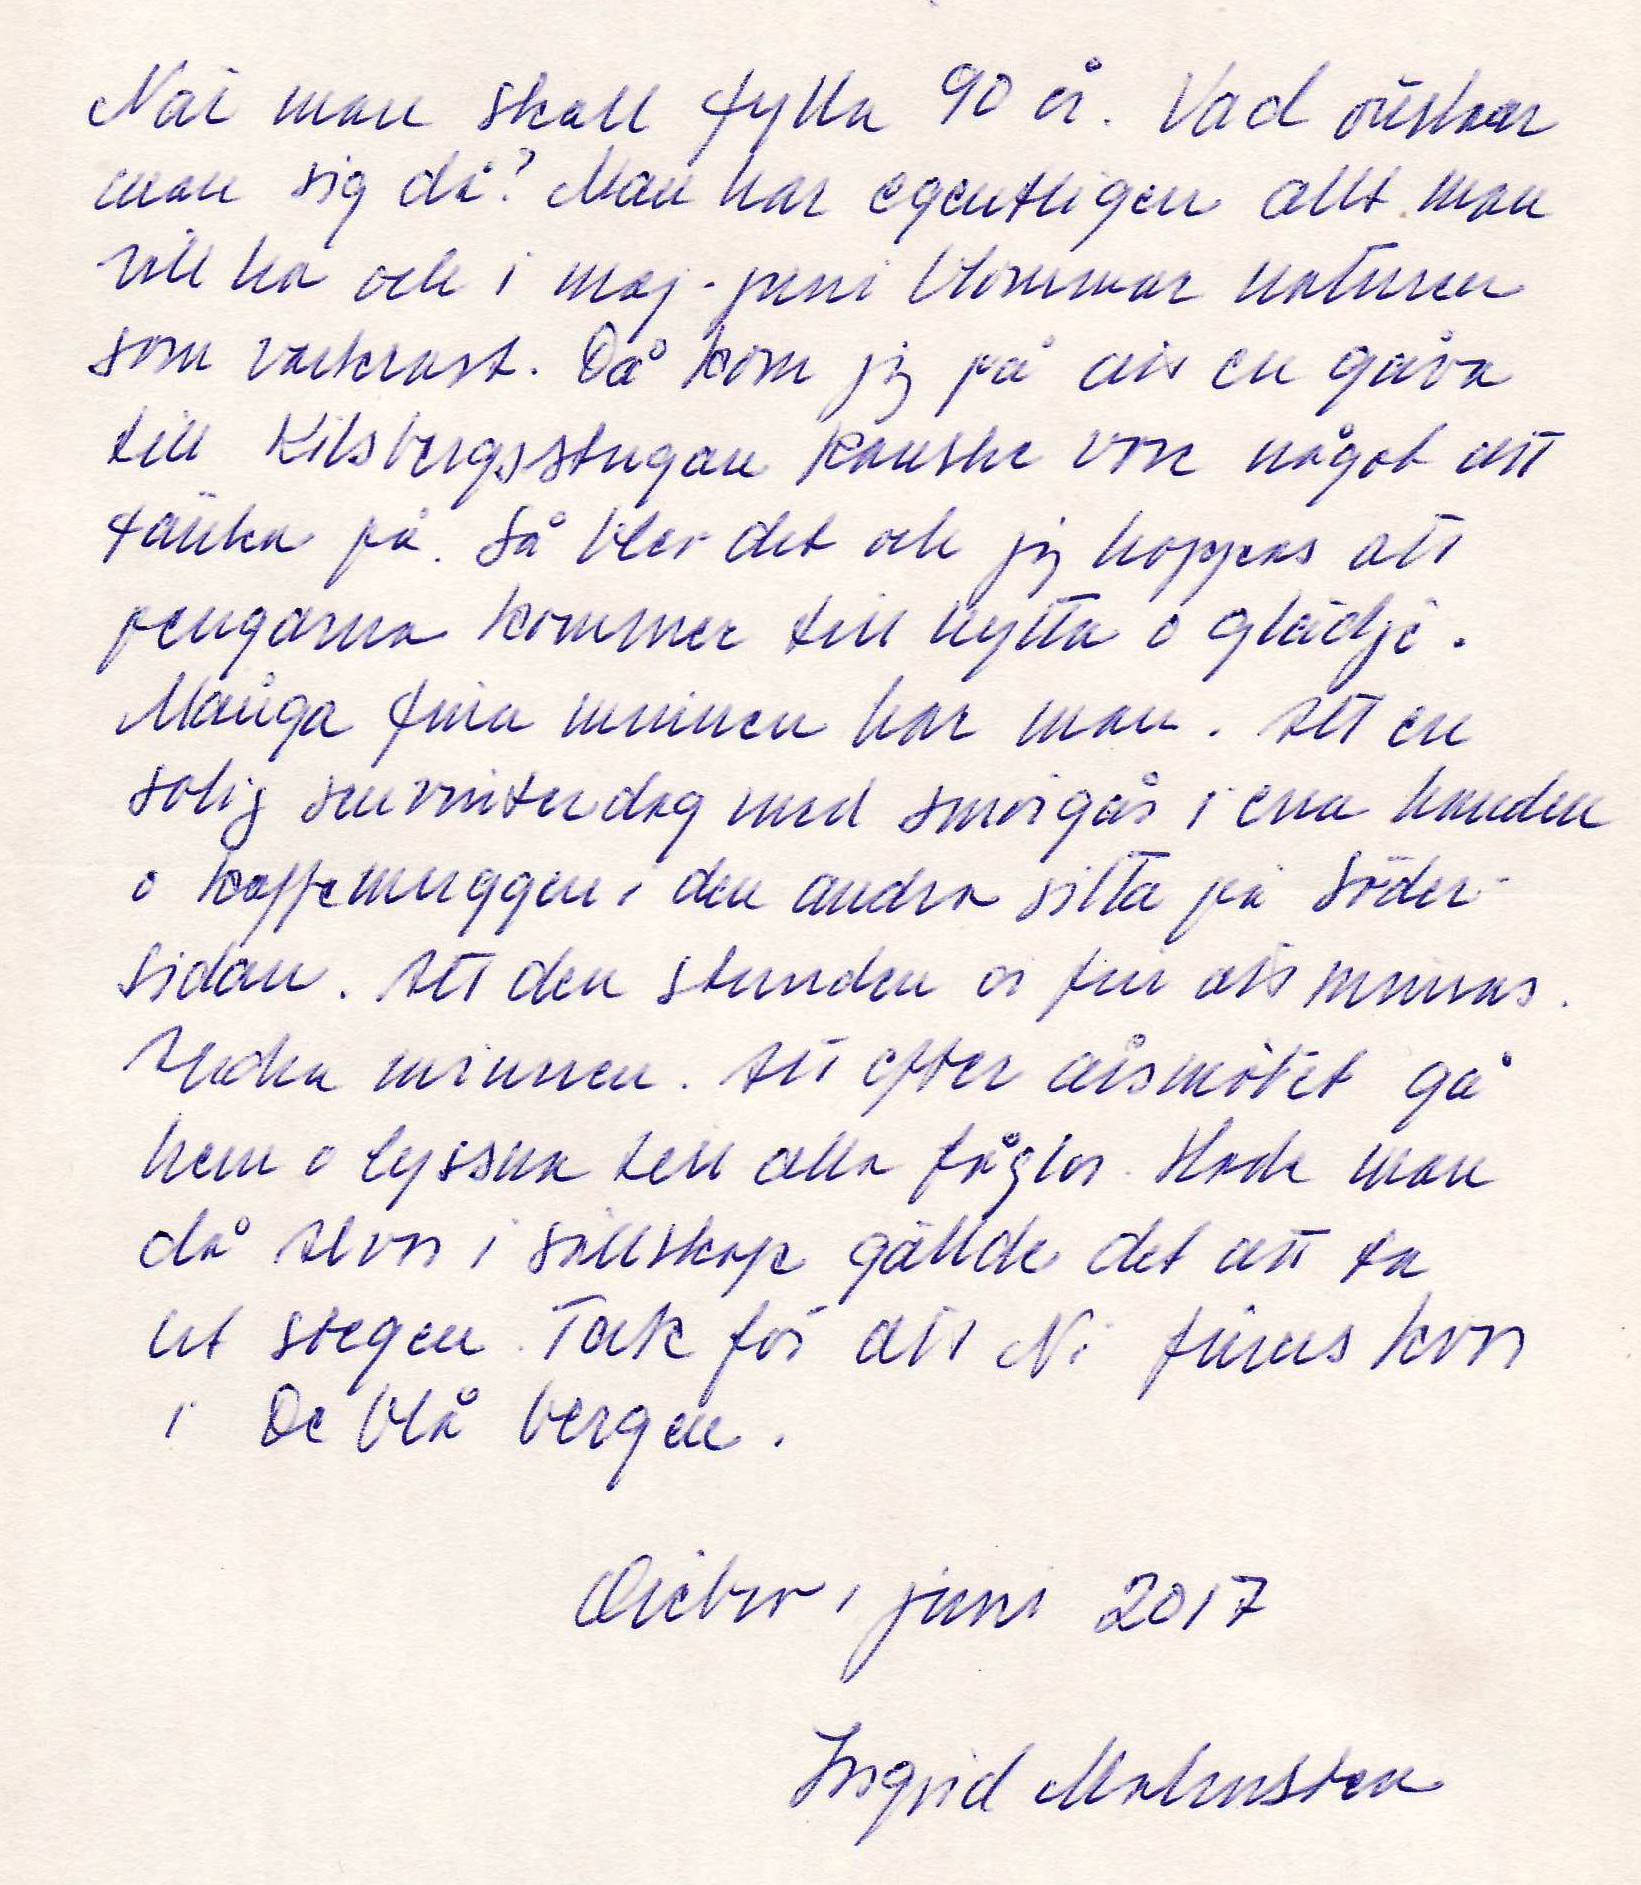 När man skall fylla 90 år. Vad önskar
man sig då? Man har egentligen allt man
vill ha och i maj-juni blommar naturen
som vackrast. Då kom jag på att en gåva
till Kilsbergsstugan kanske vore något att
tänka på. Så blev det och jag hoppas att
pengarna kommer till nytta o glädje.
Många fina minnen har man. Att en
solig senvinterdag med smörgås i ena handen
o kaffemuggen i den andra sitta på söder-
sidan. Att den stunden är fin att minnas.
Andra minnen. Att efter årsmötet gå
hem o lyssna till alla fåglar. Hade man
då Alvar i sällskap gällde det att ta
ut stegen. Tack för att Ni finns kvar
i De blå bergen.
Örebro i juni 2017
Ingrid Malmsten